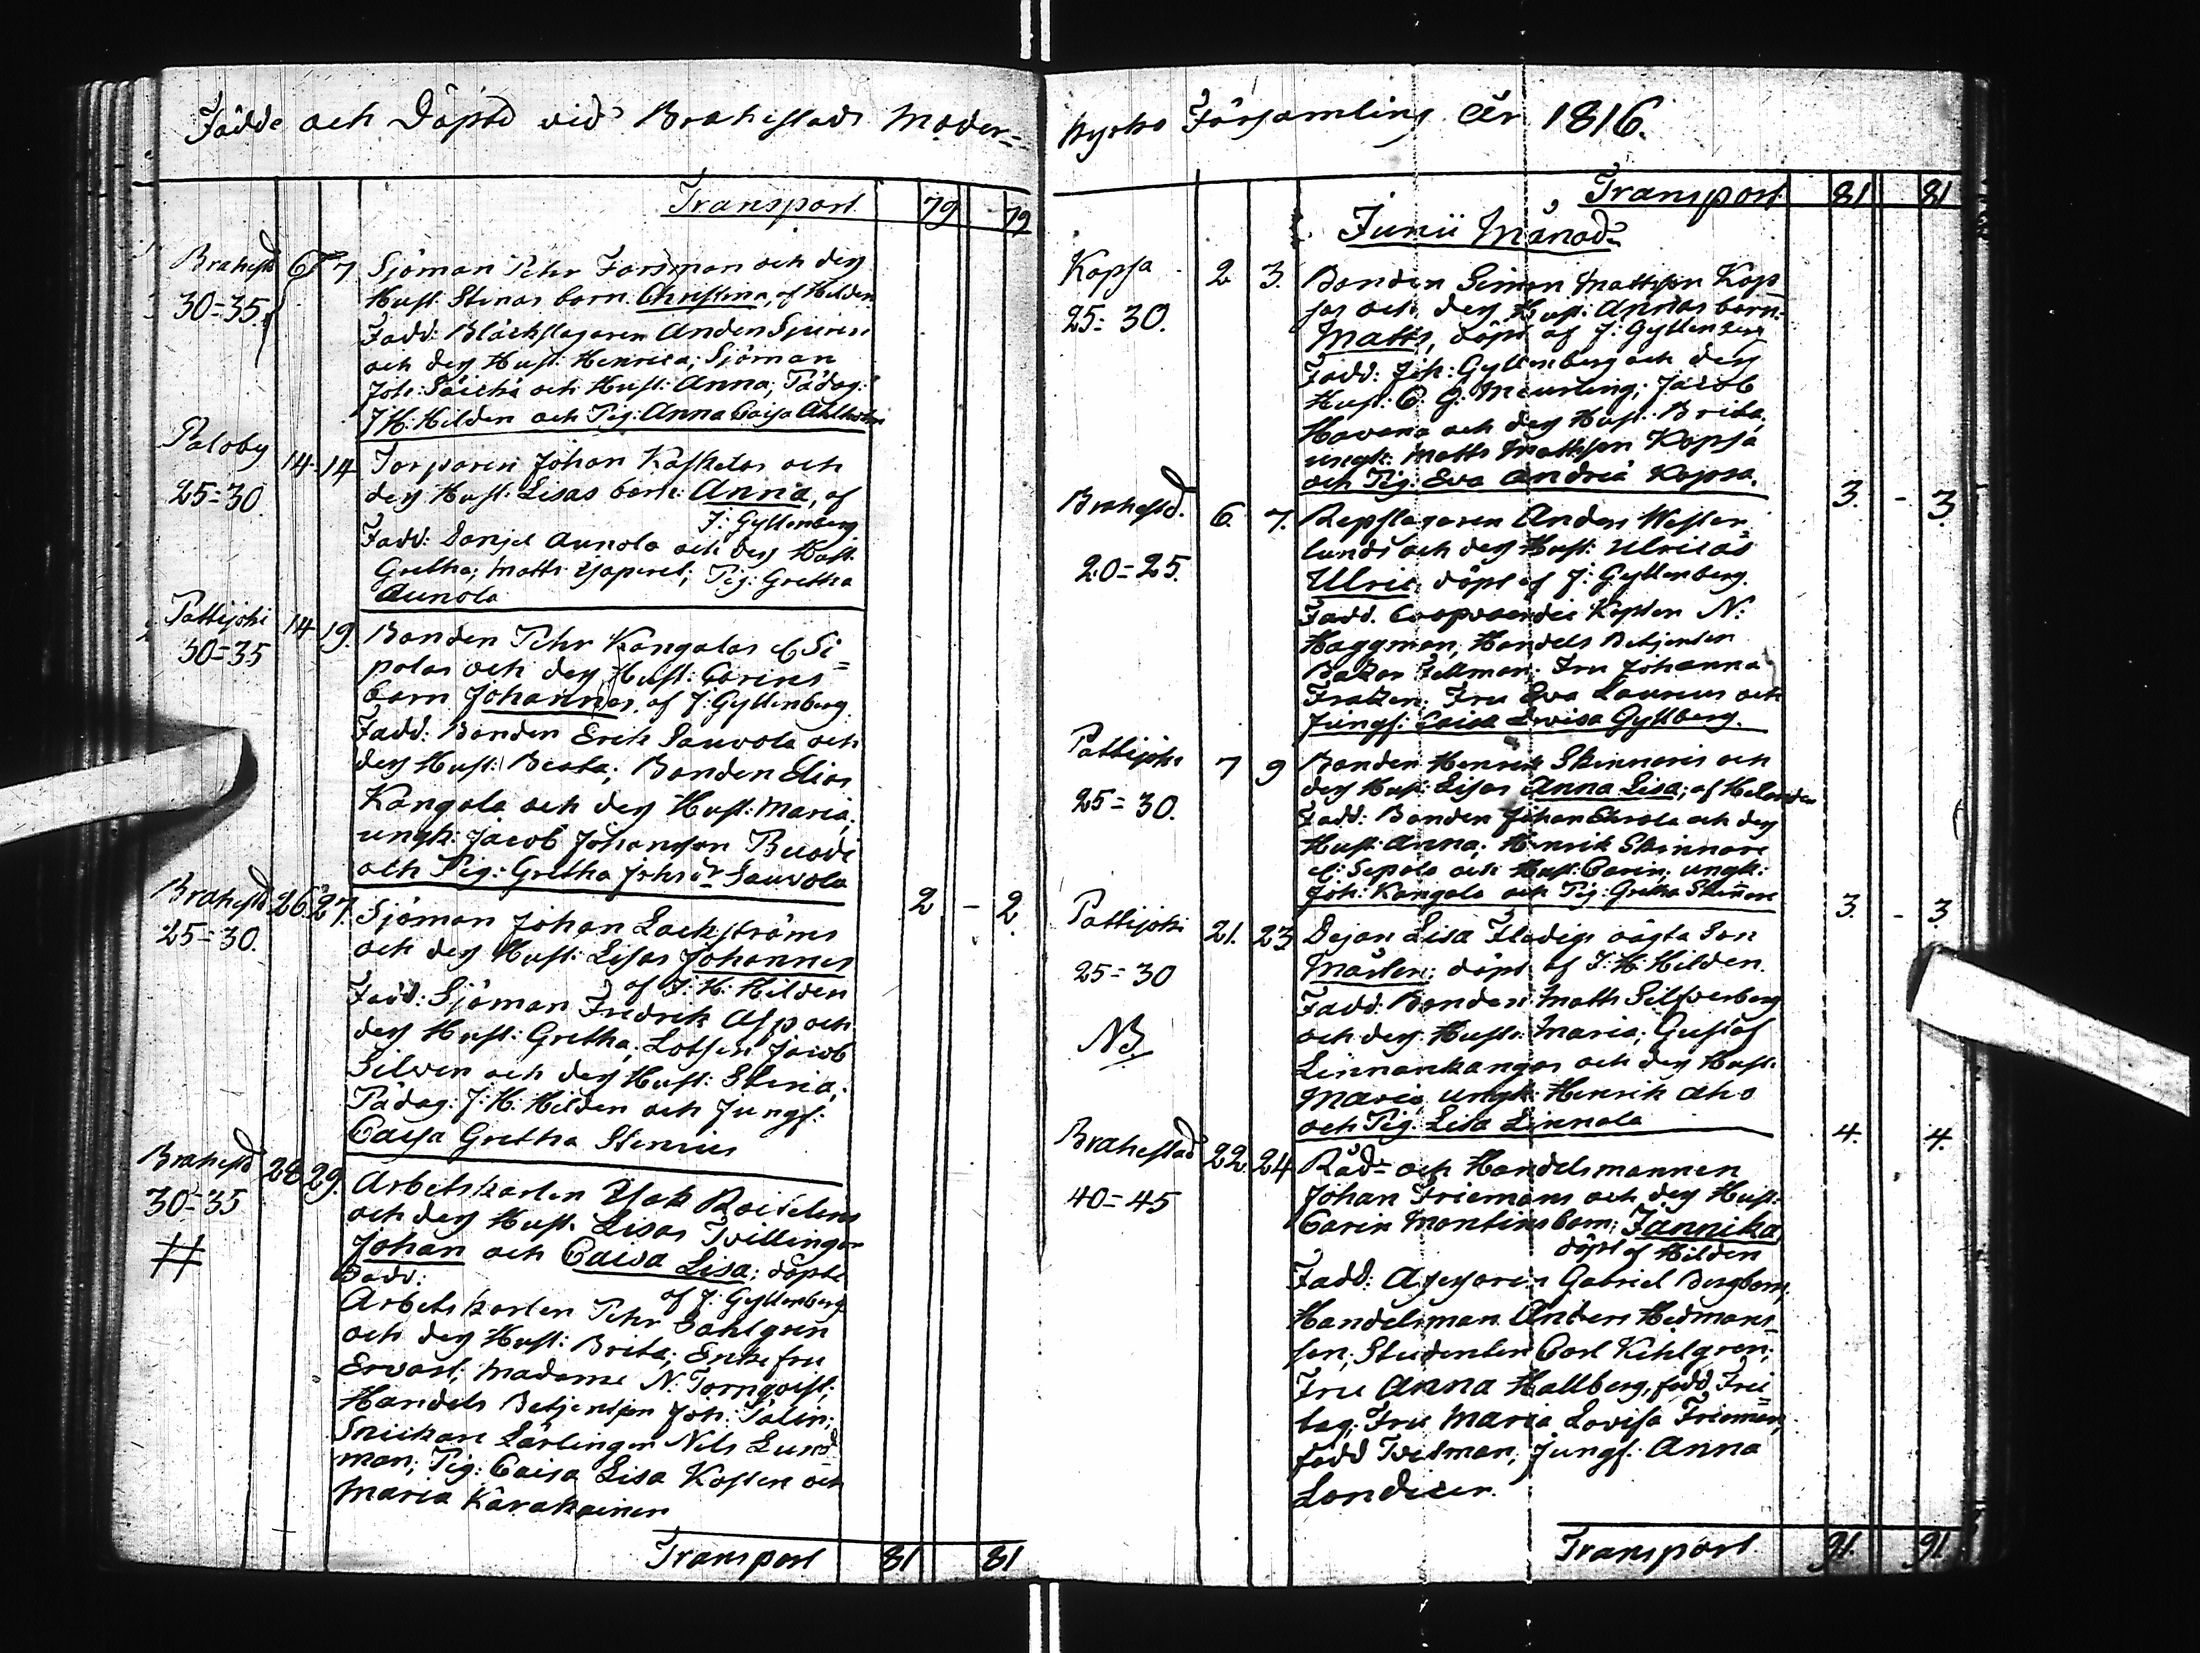 Födde och Döpte vid Brahestads Moder=
Transport 79 - 79
Brahestd 6 7 Sjöman Pehr Forsman och dess
30=35. Hust. Stinas barn Christina, af Hilden
Fadd: Bläckslagaren Anders Sjuren
och dess Hust. Henrica; Sjöman
Joh: och Hust: Anna; Pädag:
J H. Hilden och Pig: Anna Caisa Ahlholm
Paloby 14 14 Torparen Johan Kaskelas och
25=30 dess Hust: Lisas barn: Anna, af
J: Gyllenberg
Fadd: Daniel Aunola och dess Hust.
Gretha; Matts Yaperel; Pig: Gretha
Aunola
Pattijoki 14 19. Bonden Pehr Kangalas el Si=
30=35 polas och dess Hust: Carins
barn Johannes, af J: Gyllenberg
Fadd: Bonden Erik Sauvola och
dess Hust: Beata; Bonden Elias
Kangala och dess Hust: Maria;
ungk: Jacob Johansson Ruodi
och Pig: Gretha Johs dr Sauvola 2 - 2.
Brahestd 26 27. Sjöman Johan Lackströms
25=30. och dess Hust: Lisas Johannes
af J: H: Hilden
Fadd: Sjöman Fredrik Asp och
dess Hust: Gretha; Lotsen Jacob
Silven och dess Hust: Stina;
Pädag: J: H: Hilden och Jungf:
Caisa Gretha Stenius
Brahestd 28 29. Arbetskarlen Isak Roitelens
30=35 och dess Hust. Lisas Tvillingar
# Johan och Caisa Lisa; döpte
Fadd: af J: Gyllenberg
Arbetskarlen Pehr Dahlgren
och dess Hust: Brita; Enkefru
Ervast; Madame N. Tornqvist;
Handels Betjenten Joh: Palin;
Snickare Lärlingen Nils Lund
man; Pig: Caisa Lisa Kosten och
Maria Karakainen
Transport 81 81
kyrko Församling År 1816.
Transport 81 81
Junii Månad
Kopsa 2 3. Bonden Simon Mattsson Kop
25=30. sas och dess Hust: Annas barn
Matts, döpt af J: Gyllenberg
Fadd: Joh: Gyllenberg och dess
Hust: C. G. Meurling; Jacob
Havana och dess Hust. Brita,
ungk: Matts Mattsson Kopsa
och Pig: Eva Andrid Kopsa. 3. - 3.
Brahestd. 6. 7. Repslagaren Anders Wester
20=25. lunds och dess Hust: Ulricas
Ulric döpt af J: Gyllenberg.
Fadd. Coopvaerdie Kapten N:
Haggman, Handels Betjenten
Baltzar Fellman. Fru Johanna
Fratzen; Fru Eva Laurius och
Jungf: Caisa Lovisa Gyllberg.
Pattijoki 7 9 Bonden Henrik Skinnaris och
25=30. dess Hust: Lisas Anna Lisa; af Helander
Fadd: Bonden Johan och dess
Hust: Anna; Henrik Skinnare
el: Sepola och Hust: Carin; ungk:
Joh: Kangala och Pig: Gretha Skinnare 3. - 3.
Pattijoki 21. 23 Dejan Lisa Fladigs oägta Son
25=30 Mårten; döpt af J: H: Hilden.
NB Fadd: Bonden Matts Silfverberg
och dess Hust: Maria; Gustaf
Linnankangas och dess Hust:
Maria, ungk: Henrik Aho
och Pig: Lisa Linnala 4. 4.
Brahestad 22. 24 Råd= och Handelsmannen
40=45 Johan Friemans och dess Hust:
Carin Montins barn; Jannika,
döpt af Hilden
Fadd: Assessoren Gabriel Bergbom;
Handelsman Anders Hedmans=
son; Studenten Carl Kihlgren;
Fru Anna Hallberg, född Frei=
tag; Fru Maria Lovisa Frieman,
född Tvelman; Jungf: Anna
Londicer.
Transport 91. 91